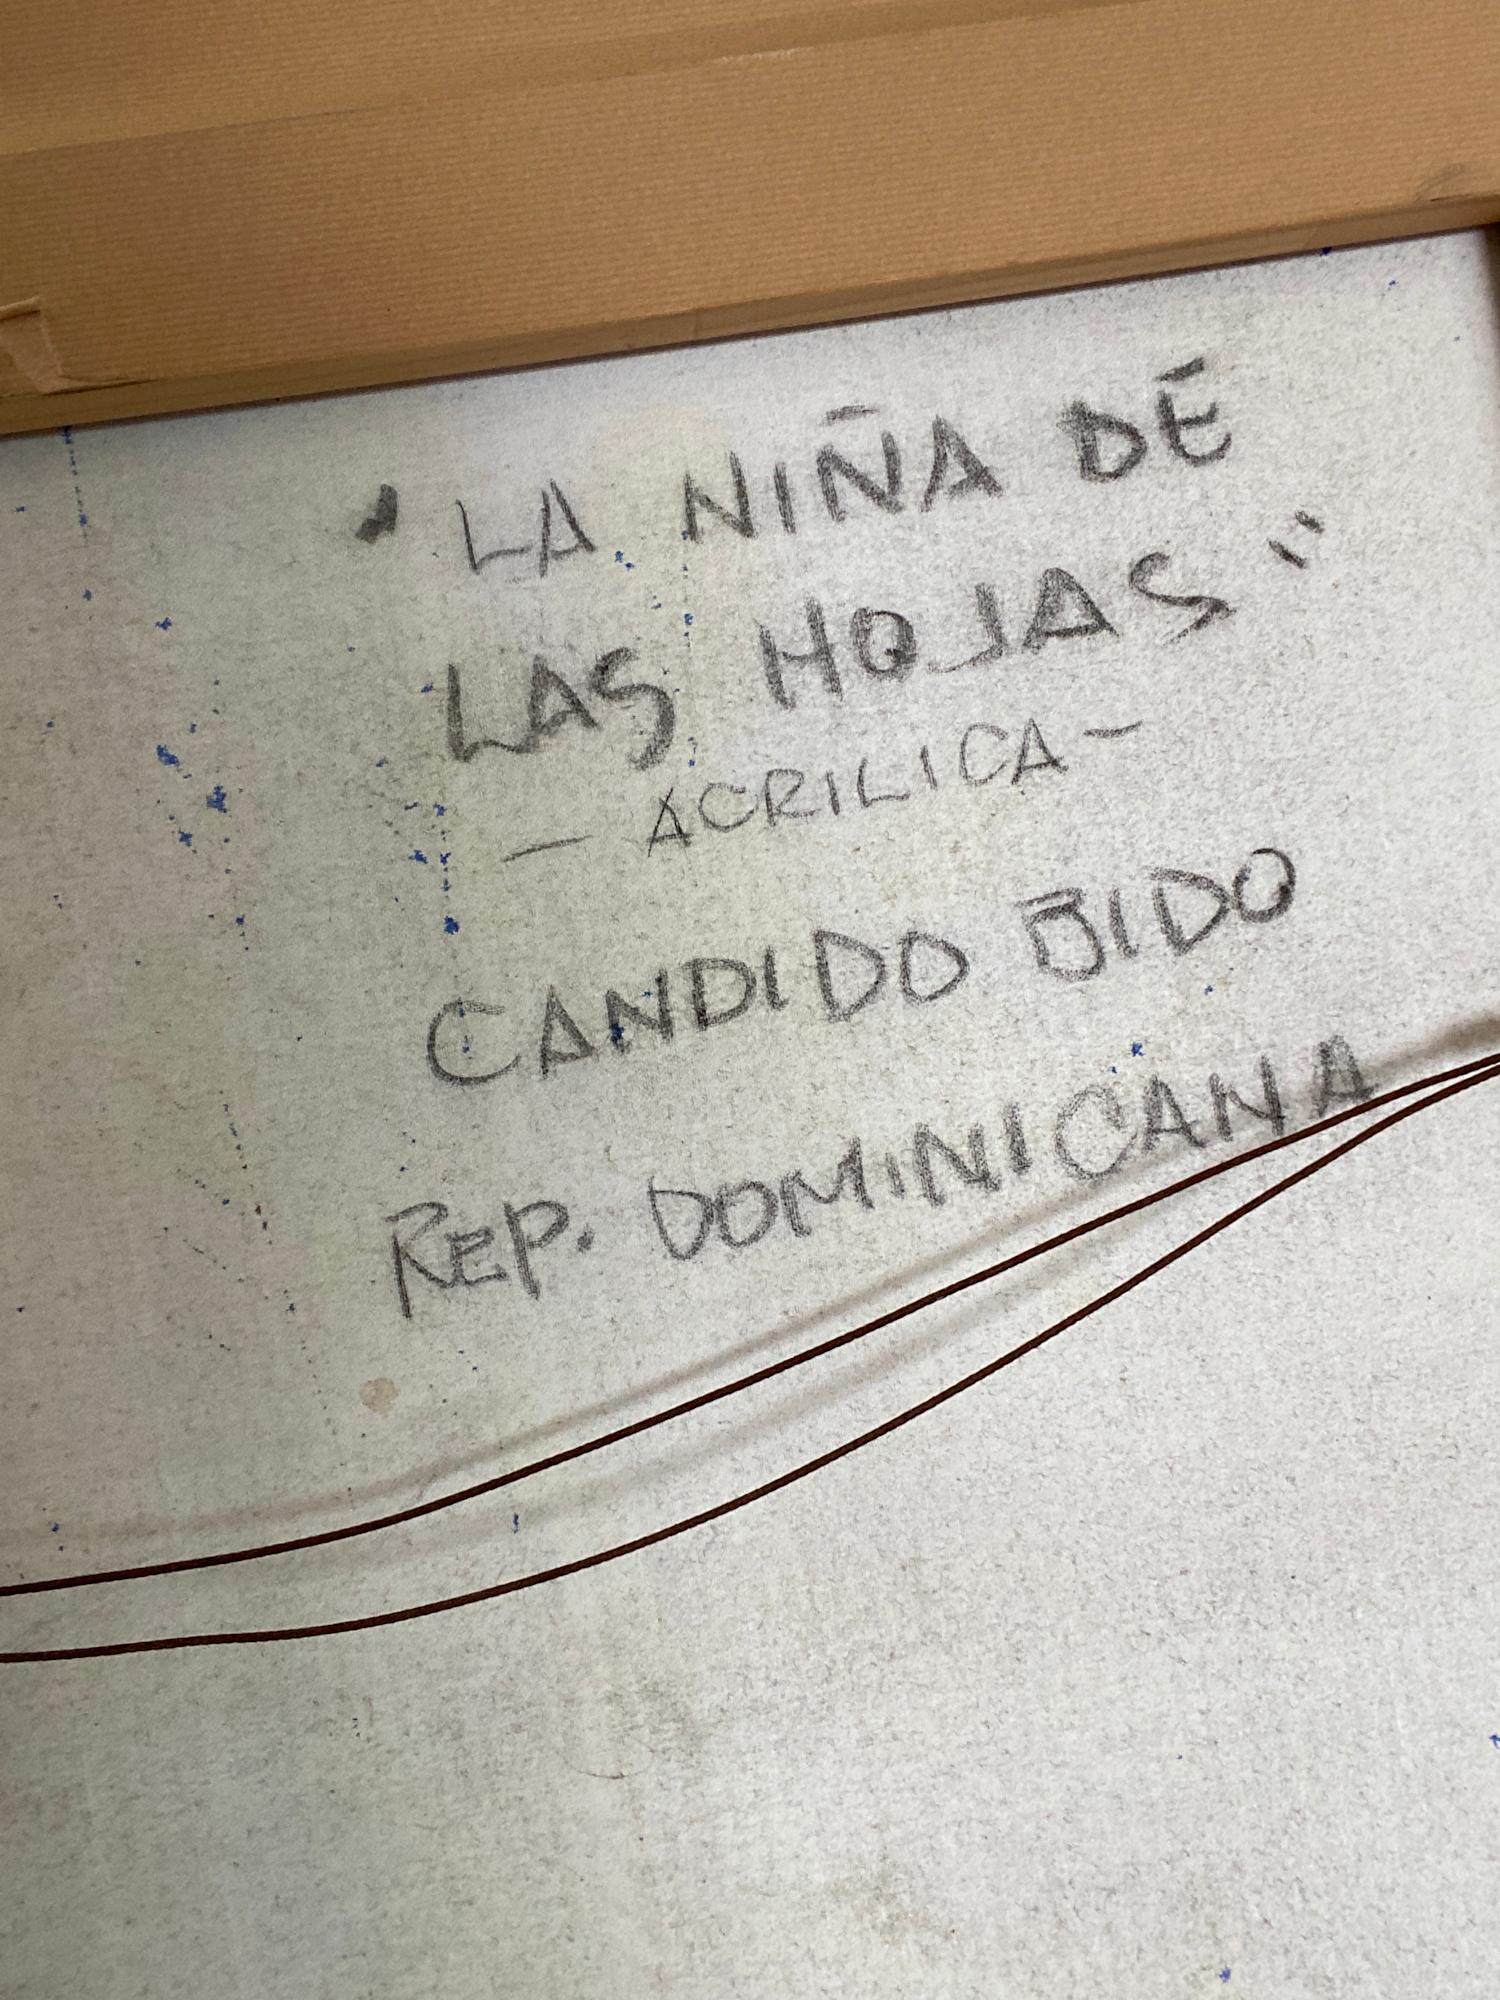 "LA NIÑA DE
LAS HOJAS"
- ACRILICA -
CANDIDO BIDO
REP. DOMINICANA